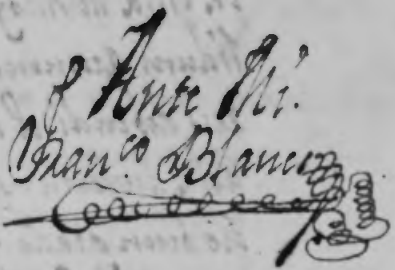 Ante Mí.
Fran.co Blanco